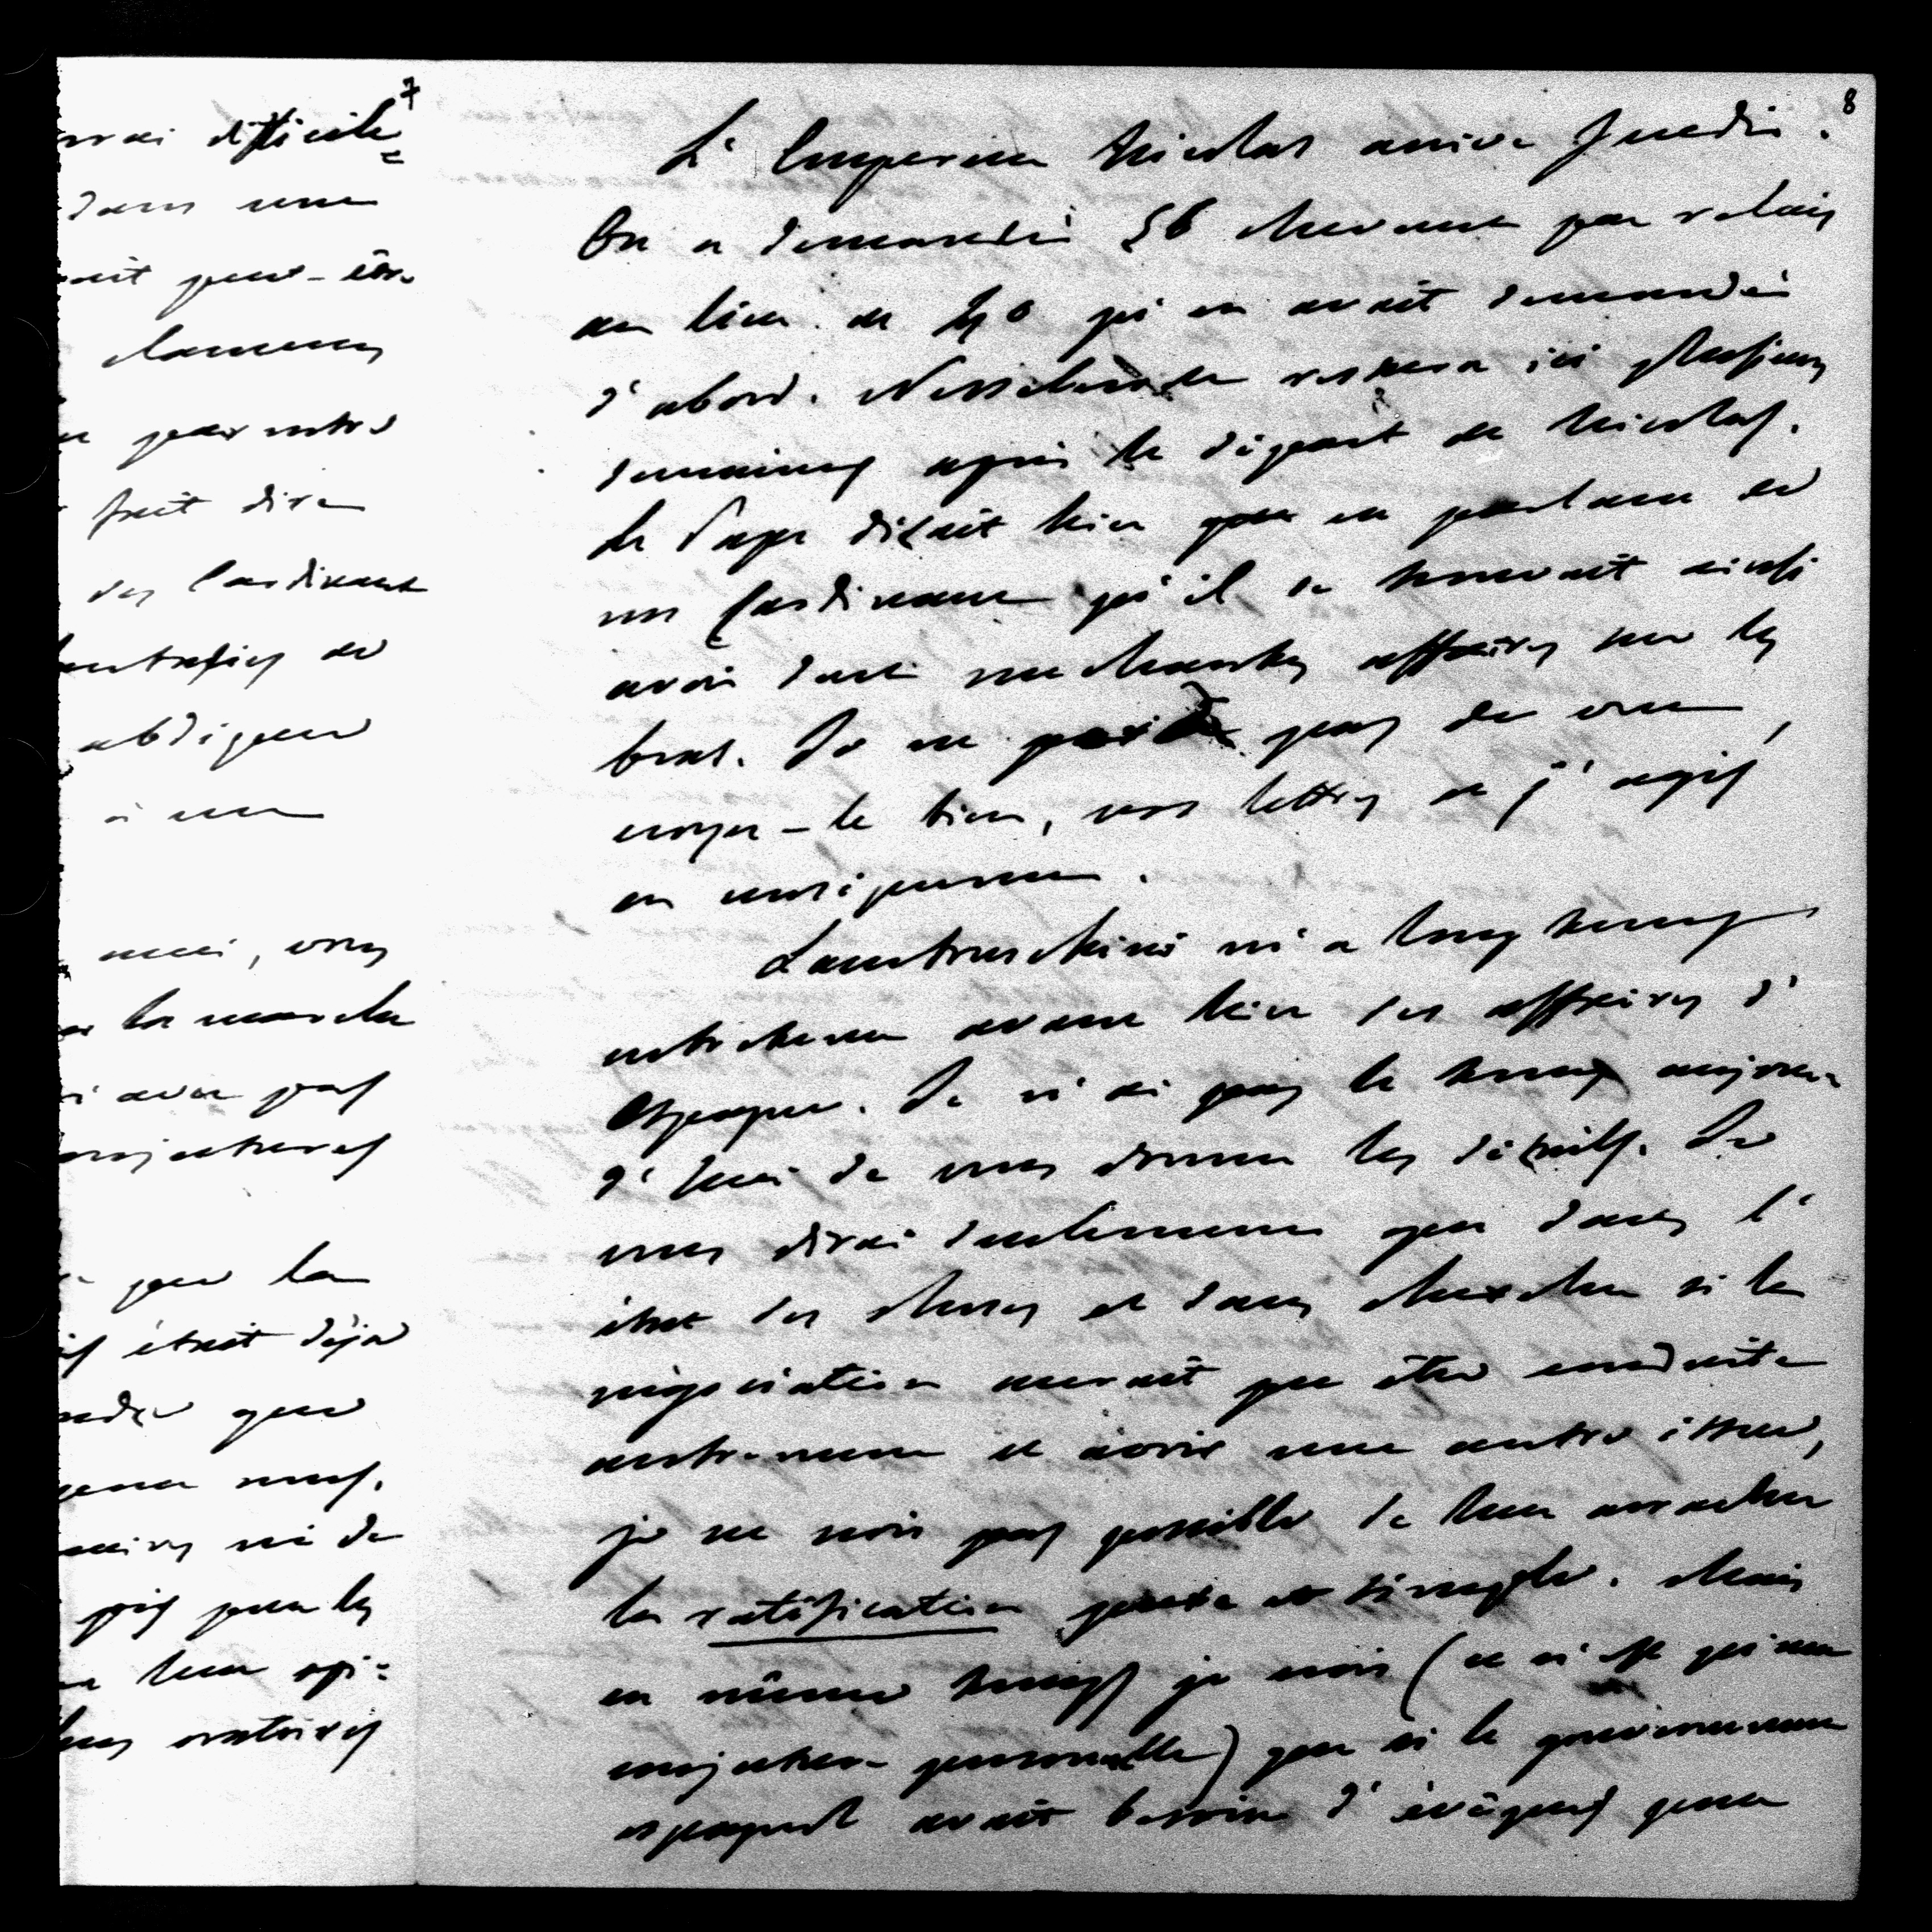 7
difficile
dans une
ait peut-être
clameurs
peur votre
fait dire
des Cardinaux
de
obligeur
à un
merci, vous
la marche
avec pas
conjectures
pour la
était déjà
que
nous.
ni de
pris pour les
leur opi=
oratoires
8
L'Empereur Nicolas arrive Jeudi.
On a demandé 56 chevaux par relais
au lieu de 40 qu'on avait demandés
d'abord. Nesselrode restera ici plusieurs
semaines après le départ de Nicolas.
Le Pape disait hier que en parlant à
un Cardinal qu'il se trouvait ainsi
avoir deux méchantes affaires sur les
bras. Je ne perds pas de vue,
croyez-le bien, vos lettres et j'agis
en conséquence.
Lambruschini m'a long temps
entretenu avant hier des affaires d'
Espagne. Je n'ai pas le temps aujour=
d'hui de vous donner les détails. Je
vous dirai seulement que dans l'
état des choses et sans chercher si la
négociation aurait pu être conduite
autrement et avoir une autre issue,
je ne crois pas possible de leur arracher
la ratification pure et simple. Mais
en même temps je crois (ce n'est qu'une
conjecture personnelle) que si le gouvernement
espagnol avait besoin d'évêques pour